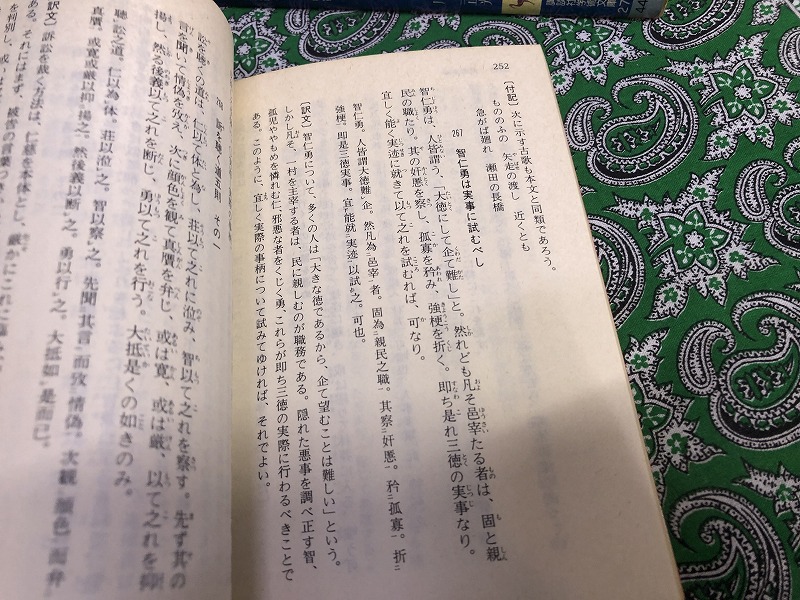 252
〔付記〕 次に示す古歌も本文と同類であろう。
もののふの 矢走の渡し 近くとも
急がば廻れ 瀬田の長橋
267 智仁勇は実事に試むべし
智仁勇は、人皆謂う、「大徳にして企て難し」と。然れども凡そ邑宰たる者は、固と親
民の職たり。其の奸慝を察し、孤寡を矜み、強梗を折く。即ち是れ三徳の実事なり。
宜しく能く実迹に就きて以て之れを試むれば、可なり。
智仁勇。人皆謂大徳難企。然凡為邑宰者。固為親民之職。其察奸慝。矜孤寡。折
強梗。即是三徳実事。宜能就実迹以試之。可也。
〔訳文〕 智仁勇について、多くの人は「大きな徳であるから、企て望むことは難しい」という。
しかし凡そ、一村を主宰する者は、民に親しむのが職務である。隠れた悪事を調べ正す智、
孤児ややもめを憐れむ仁、邪悪な者をくじく勇、これらが即ち三徳の実際に行わるべきことで
ある。このように、宜しく実際の事柄について試みてゆければ、それでよい。
訟を聴くの道は、仁以て体と為し、荘以て之れに涖み、智以て之れを察す。先ず其の
言を聞いて情偽を攷え、次に顔色を観て真贋を弁じ、或は寛、或は厳、以て之れを抑
揚し、然る後義以て之れを断じ、勇以て之れを行う。大抵是くの如きのみ。
聴訟之道。仁以為体。荘以涖之。智以察之。先聞其言而攷情偽、次観顔色而弁
真贋。或寛或厳以抑揚之。然後義以断之。勇以行之。大抵如是而已。